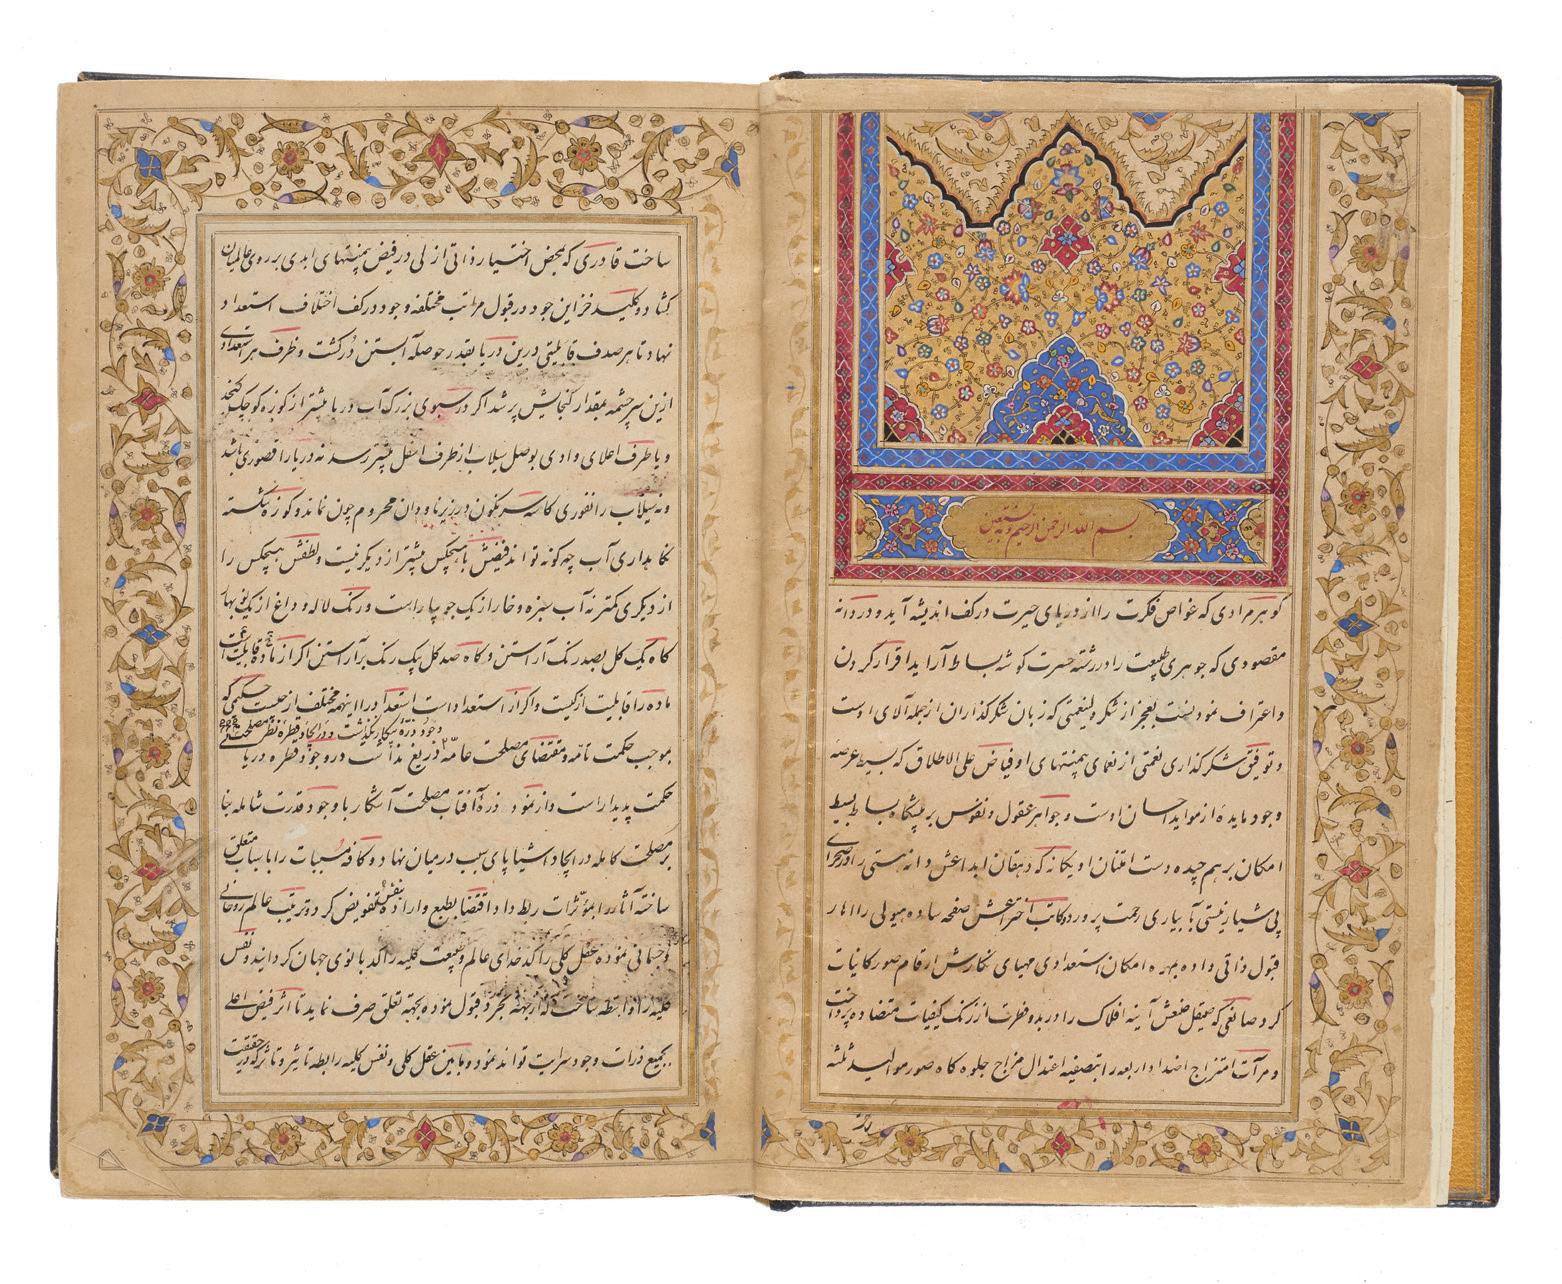 بسم الله الرحمن الرحیم و به نستعین
کوهر مرادی که غواص فکرت را از دریای حیرت در کف اندیشه آید و دردانه
مقصودی که جوهری طبیعت را در رشته حسرت کوشه بساط آراید اقرار کردن
و اعتراف نمودنست بعجز از شکر ولینعمتی که زبان شکر کذاران از جمله آلای اوست
و توفیق شکر کذاری نعمتی از نعمای بیمنتهای او فیاض علی الاطلاق که بسیط عرصه
وجود مایده از مواید احسان اوست و جواهر عقول و نفوس بر پیشکاه بساط بسیط
امکان بر هم چیده دست امتنان او یکانه که دهقان ابداعش دانه هستی را در صحرای
بی شیار نیستی بآبیاری رحمت پرورد و کاتب اختراعش صفحه ساده هیولی را اهار
قبول ذاتی داده بمهره امکان استعدادی مهیای نکارش ارقام صور کاینات
کرد صانعی که صیقل صنعش آینه افلاک را در بدو فطرت از رنک کیفیات متضاده پرداخت
و مرآت امتزاج اضداد اربعه را بتصفیه اعتدال مزاج جلوه کاه صور موالید ثلثه
ساخت قادری که بمحض اختیار ذاتی ازلی در فیض بیمنتهای ابدی بر روی عالمیان
کشاد و کلید خزاین جود در قبول مراتب مختلفه وجود در کف اختلاف استعداد
نهاد تا هر صدف قابلیتی درین دریا بقدر حوصله آبستن در کشت و ظرف هر استعدادی
ازین سرچشمه بمقدار کنجایش پر شد اگر در سبوی بزرک آب دریا بیشتر از کوزه کوچک کنجد
و یا طرف اعلای وادی بوصل سیلاب از طرف اسفل پیشتر رسد نه دریا را قصوری باشد
و نه سیلاب را فتوری کاسه سرنکون در زیر ناودان محروم چون نماند و کوزه شکسته
نکاهداری آب چه کونه تواند فیضش با هیچکس بیشتر از دیکری نیست و لطفش هیچکس را
از دیکری کمتر نه آب سبزه و خار از یک جویبار است و رنک لاله و داغ از یک نوبهار
کاه یک کل بصد رنک آراستن و کاه صد کل بیک رنک برآراستن اکر از ماده قابلیت است
ماده را قابلیت از کیست و اکر از استعداد است استعداد را اینهمه مختلف از چیست حکیمی که
بموجب حکمت تامه و مقتضای مصلحت عامه دریغ نداشت در وجود قطره دریا
حکمت پدیدار است و از نمود ذره آفتاب مصلحت آشکار با وجود قدرت شامله بنا
بر مصلحت کامله در ایجاد اشیا پای سبب در میان نهاد و کافه مسببات را باسباب متعلق
ساخته آثار را بمؤثرات ربط داد اقتضا بطبع و اراده بنفس تفویض کرد و ترتیب عالم روحانی
و جسمانی نموده عقل کلی را کدخدای عالم و طبیعت کلیه را کدبانوی جهان کردانید و نفس
کلیه را واسطه ساخت که از جهته تجرد قبول نموده بجهة تعلق صرف نماید تا اثر فیض اعلی
بجمیع ذرات وجود سرایت تواند نمود و مابین عقل کلی و نفس کلیه رابطه تاثیر و تاثر که در حقیقت